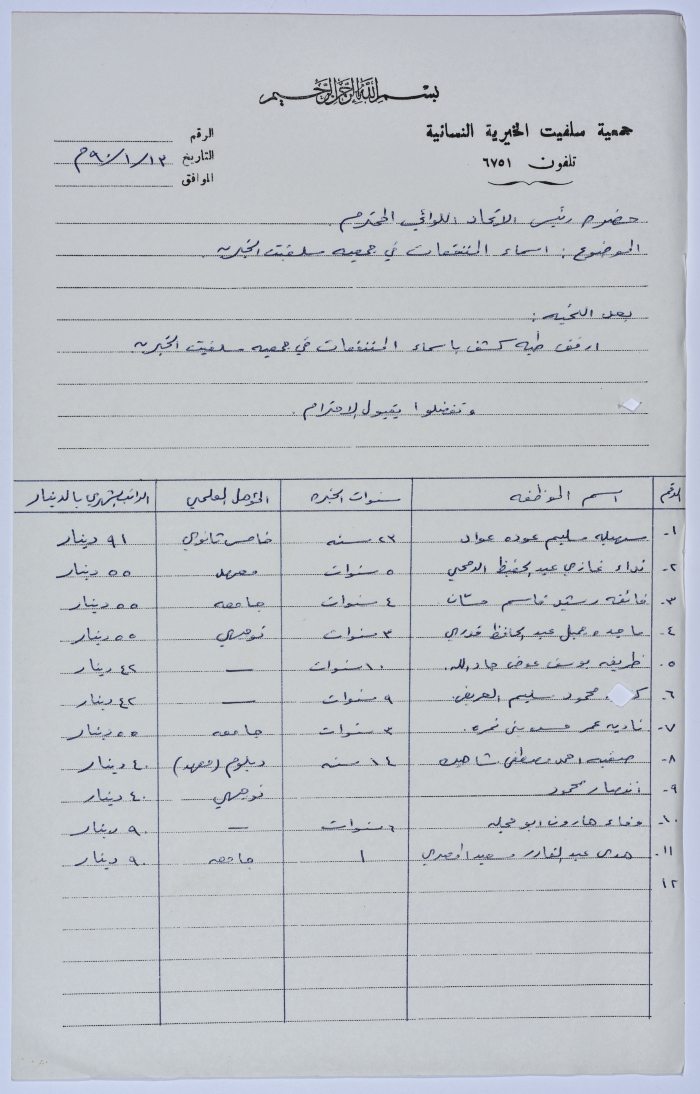 بسم الله الرحمن الرحيم
جمعية سلفيت الخيرية النسائية
تلفون ٦٧٥١
الرقم
التاريخ ١٣/١/٩٠م
الموافق
حضرة رئيس الاتحاد اللوائي المحترم.
الموضوع: اسماء المنتفعات في جمعيه سلفيت الخيريه.
بعد التحيه:
ارفق طيه كشف باسماء المنتفعات في جمعيه سلفيت الخيريه
وتفضلوا بقبول الاحترام.
الرقم اسم الموظفه سنوات الخبره المؤهل العلمي الراتب الشهري بالدينار
١- سهيله سليم عوده عواد ٢٣ سنه خامس ثانوي ٩١ دينار
٢- نداء غازي عبد الحفيظ ٥ سنوات معهد ٥٥ دينار
٣- فائقه رشيد قاسم حسان ٤ سنوات جامعه ٥٥ دينار
٤- ماجده جميل عبد الحافظ قدري ٣ سنوات توجيهي ٥٥ دينار
٥- ظريفه يوسف عوض جاد الله. ١٠ سنوات — ٤٢ دينار
٦- محمود سليم ٩ سنوات — ٤٢ دينار
٧- ناديه عمر حسن بني نمره. ٣ سنوات جامعه ٥٥ دينار
٨- صفيه احمد مصطفى شاهين ١٤ سنه دبلوم (معهد) ٤٠ دينار
٩- انتصار محمود توجيهي ٤٠ دينار
١٠- وفاء هارون ابو حجله ٦ سنوات — ٩٠ دينار
١١- هدى عبد القادر سعيد ١ جامعه ٩٠ دينار
١٢